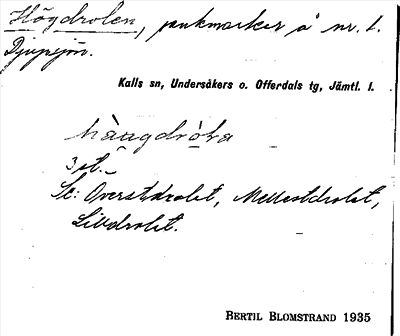 Högdrolen, punkmarker å nr. 1.
Djupsjön.
Kalls sn, Undersåkers o. Offerdals tg, Jämtl. l.
håagdròɩa
3 st.
Se: Överstdrolet, Mellestdrolet,
Lilldrolet.
BERTIL BLOMSTRAND 1935